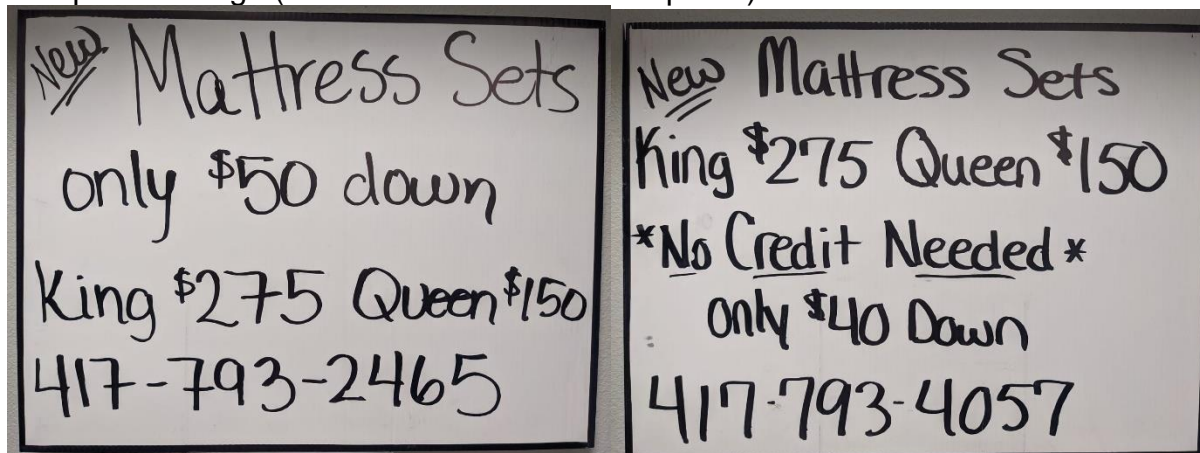 New Mattress Sets
only $50 down
King $275 Queen $150
417-793-2465
New Mattress Sets
King $275 Queen $150
*No Credit Needed*
only $40 Down
417-793-4057